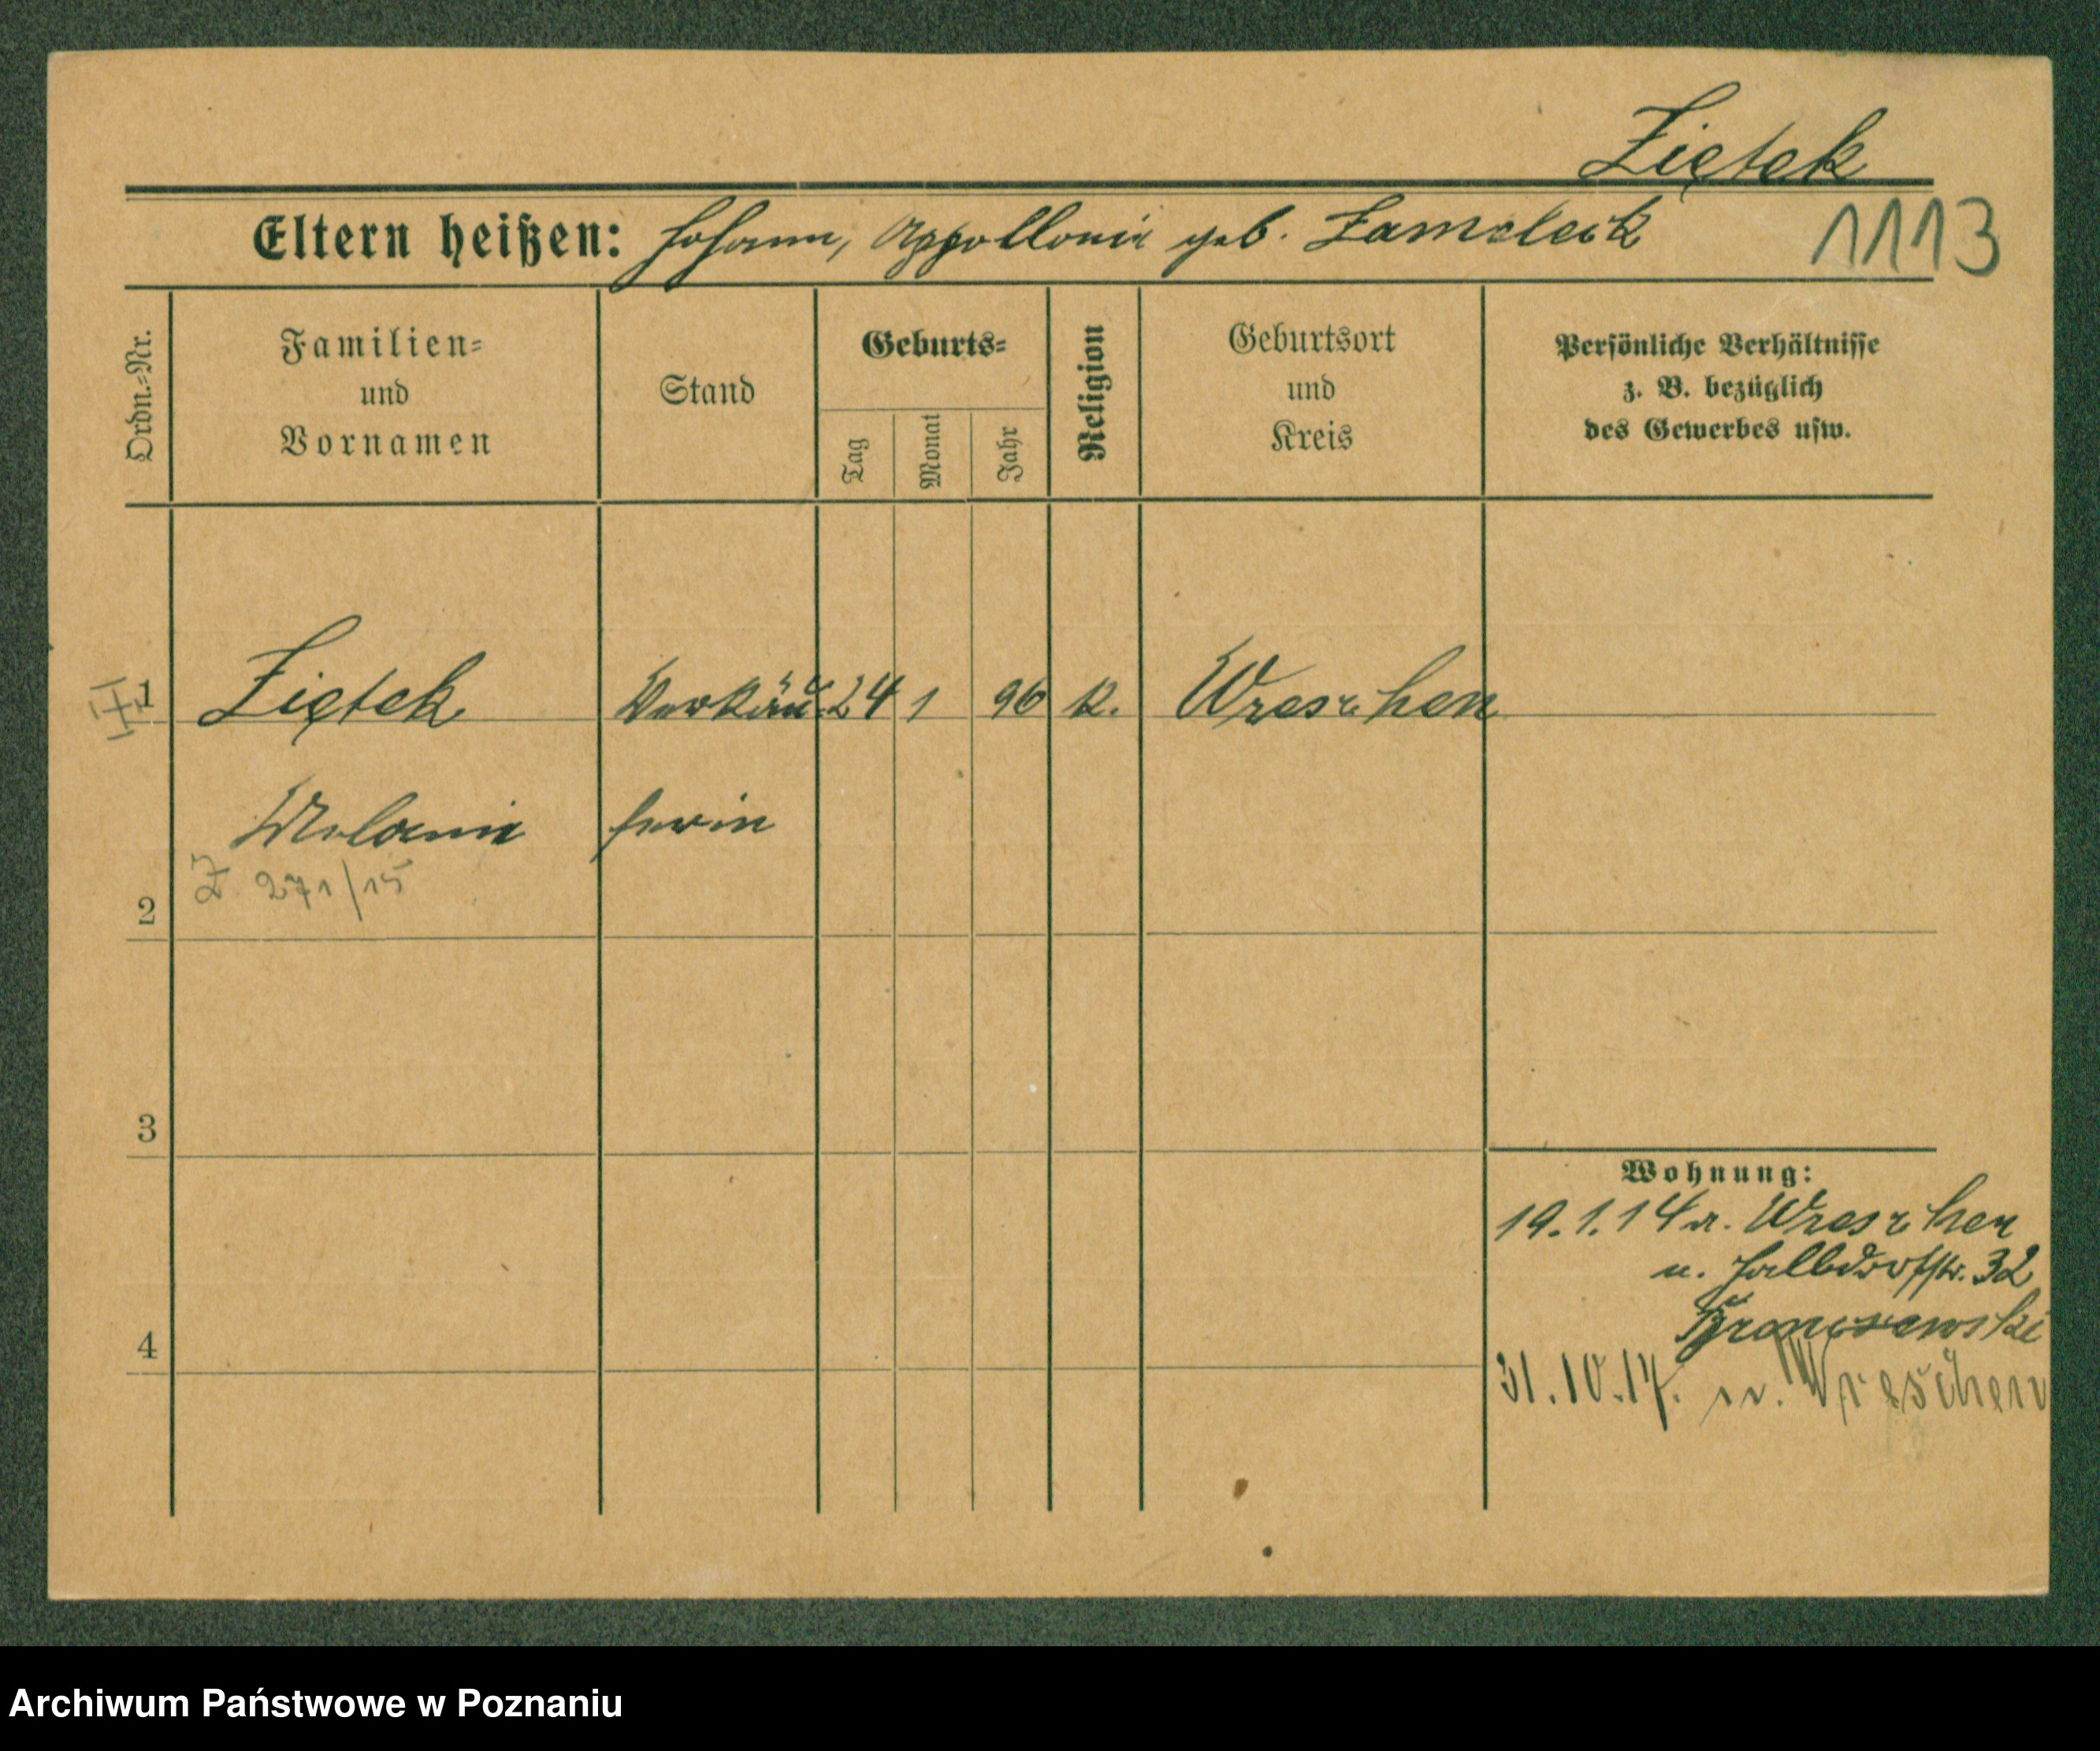 Ziętek
Eltern heißen: Johann, Appollonia geb. Zamcleck
1113
Ordn.-Nr.
Familien=
und
Vornamen
Stand
Geburts=
Tag
Monat
Jahr
Religion
Geburtsort
und
Kreis
Persönliche Verhältnisse
z. B. bezüglich
des Gewerbes usw.
1 Ziętek Verkäu 24 1 96 k. Wreschen
Melanie ferin
Z 271/15
2
3
Wohnung:
19.1.14 v. Wreschen
n. Halbdorfstr. 32
4
31.10.17. n. Wreschen
Archiwum Państwowe w Poznaniu